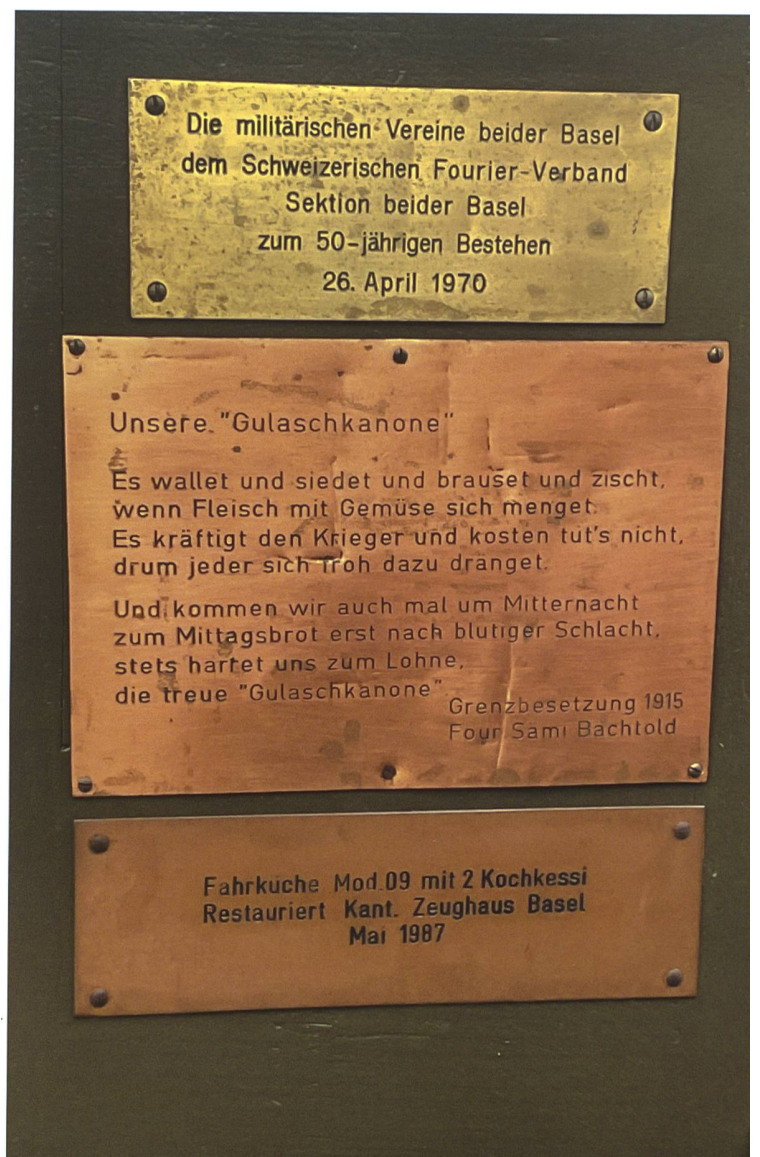 Die militärischen Vereine beider Basel
dem Schweizerischen Fourier-Verband
Sektion beider Basel
zum 50-jährigen Bestehen
26. April 1970
Unsere "Gulaschkanone"
Es wallet und siedet und brauset und zischt,
wenn Fleisch mit Gemüse sich menget.
Es kräftigt den Krieger und kosten tut's nicht,
drum jeder sich froh dazu dränget.
Und kommen wir auch mal um Mitternacht
zum Mittagsbrot erst nach blutiger Schlacht,
stets harret uns zum Lohne,
die treue "Gulaschkanone"
Grenzbesetzung 1915
Four Sami Bächtold
Fahrküche Mod.09 mit 2 Kochkessi
Restauriert Kant. Zeughaus Basel
Mai 1987